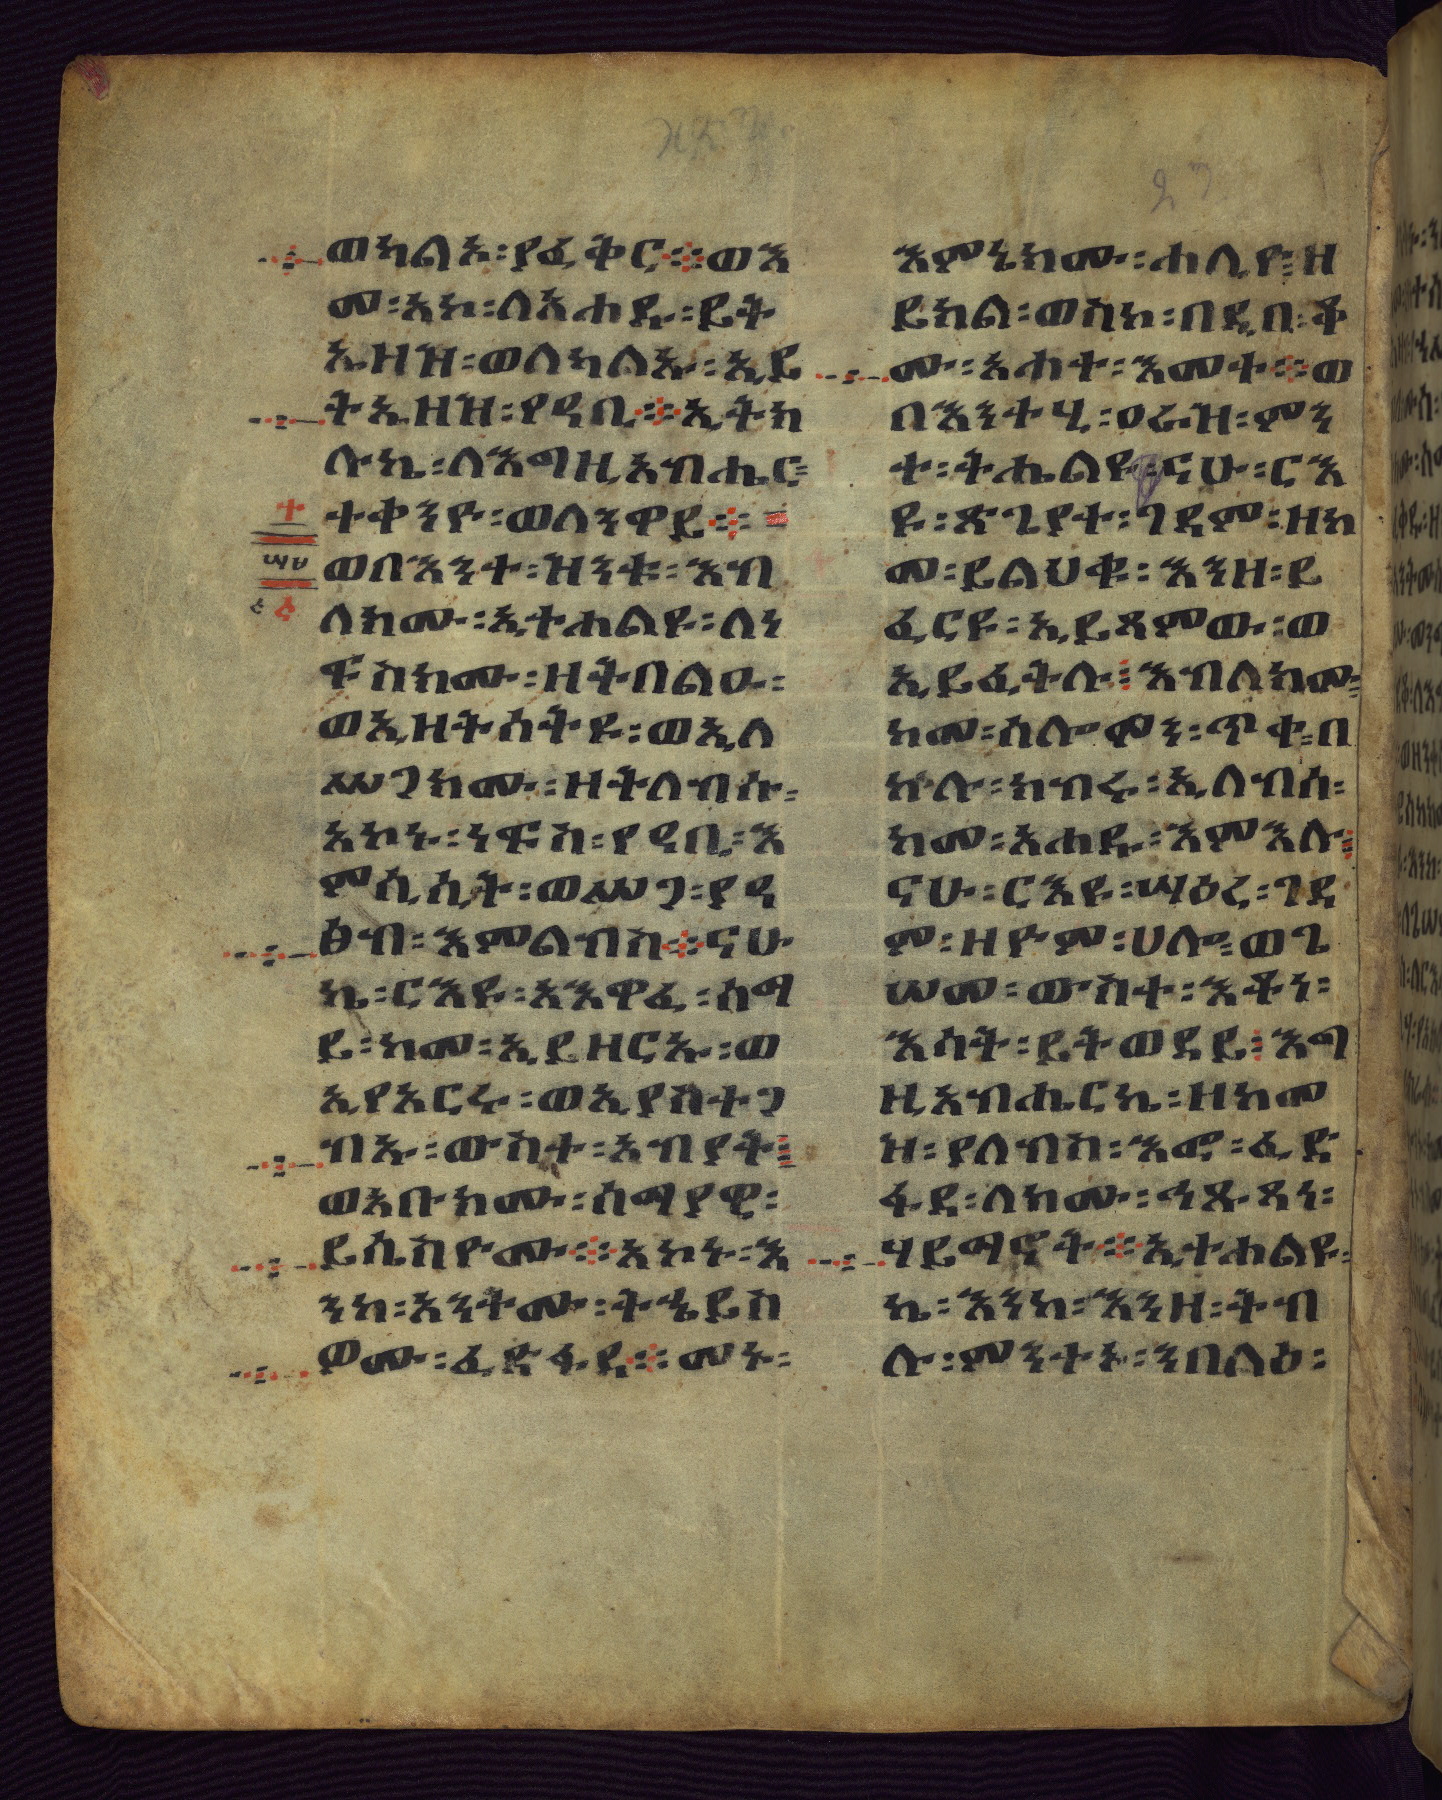 ወካልአ፡ያፈቅር፨ወእ
መ፡አኮ፡ለአሐዱ፡ይት
ኤዘዝ፡ወለካልኡ፡ኢይ
ትኤዘዝ፡የዳቢ፨ኢትክ
ሉኬ፡ለእግዚአብሔር፡
ተቀንዮ፡ወለንዋይ፨
ወበእንተ፡ዝንቱ፡እብ
ለክሙ፡ኢተሐልዩ፡ለነ
ፍስክሙ፡ዘትበልዑ፡
ወኢዘትሰትዩ፡ወኢለ
ሥጋክሙ፡ዘትለብሱ፡
አኮኑ፡ነፍስ፡የዳቢ፡እ
ምሲሲት፡ወሥጋ፡ያዳ
ፅብ፡እምልብስ፨ናሁ
ኬ፡ርእዩ፡አእዋፈ፡ሰማ
ይ፡ከመ፡ኢይዘርኡ፡ወ
ኢየአርሩ፡ወኢያስተጋ
ብኡ፡ውስተ፡አብያት፤
ወአቡክሙ፡ሰማያዊ፡
ይሴስዮሙ፨አኮኑ፡እ
ንከ፡አንትሙ፡ትኄይስ
ዎሙ፡ፈድፋደ፨መኑ፡
እምኔክሙ፡ሐሊዮ፡ዘ
ይክል፡ወስኮ፡በዲበ፡ቆ
ሙ፡አሐተ፡እመተ፨ወ
በእንተሂ፡ዐራዝ፡ምን
ተ፡ትሔልዩ፡ናሁ፡ርእ
ዩ፡ጽጌያተ፡ገዳም፡ዘከ
መ፡ይልህቁ፡እንዘ፡ይ
ፈርዩ፡ኢይጻምው፡ወ
ኢይፈትሉ፤እብለክሙ፡
ከመ፡ሰሎሞን፡ጥቀ፡በ
ኵሉ፡ክብሩ፡ኢለብሰ፡
ከመ፡አሐዱ፡እምእሉ፤
ናሁ፡ርእዩ፡ሣዕረ፡ገዳ
ም፡ዘዮም፡ሀሎ፡ወጌ
ሠመ፡ውስተ፡እቶን፡
እሳት፡ይትወደይ፤እግ
ዚአብሔርኬ፡ዘከመ
ዝ፡ያለብስ፡እፎ፡ፈድ
ፋደ፡ለክሙ፡ሕጹጻነ፡
ሃይማኖት፨ኢተሐልዩ፡
ኬ፡እንከ፡እንዘ፡ትብ
ሉ፡ምንተኑ፡ንበልዕ፡